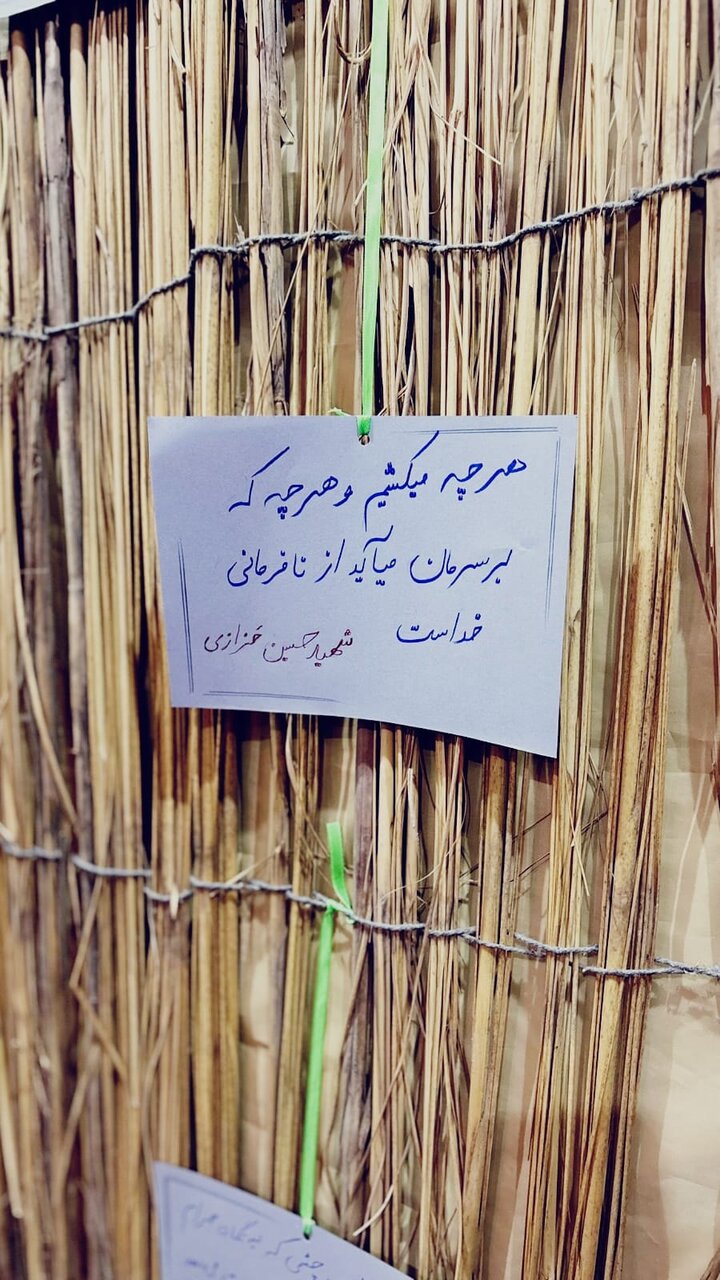 هرچه میکشیم و هرچه که
برسرمان میآید از نافرمانی
خداست
شهید حسین خرازی
که به گناه